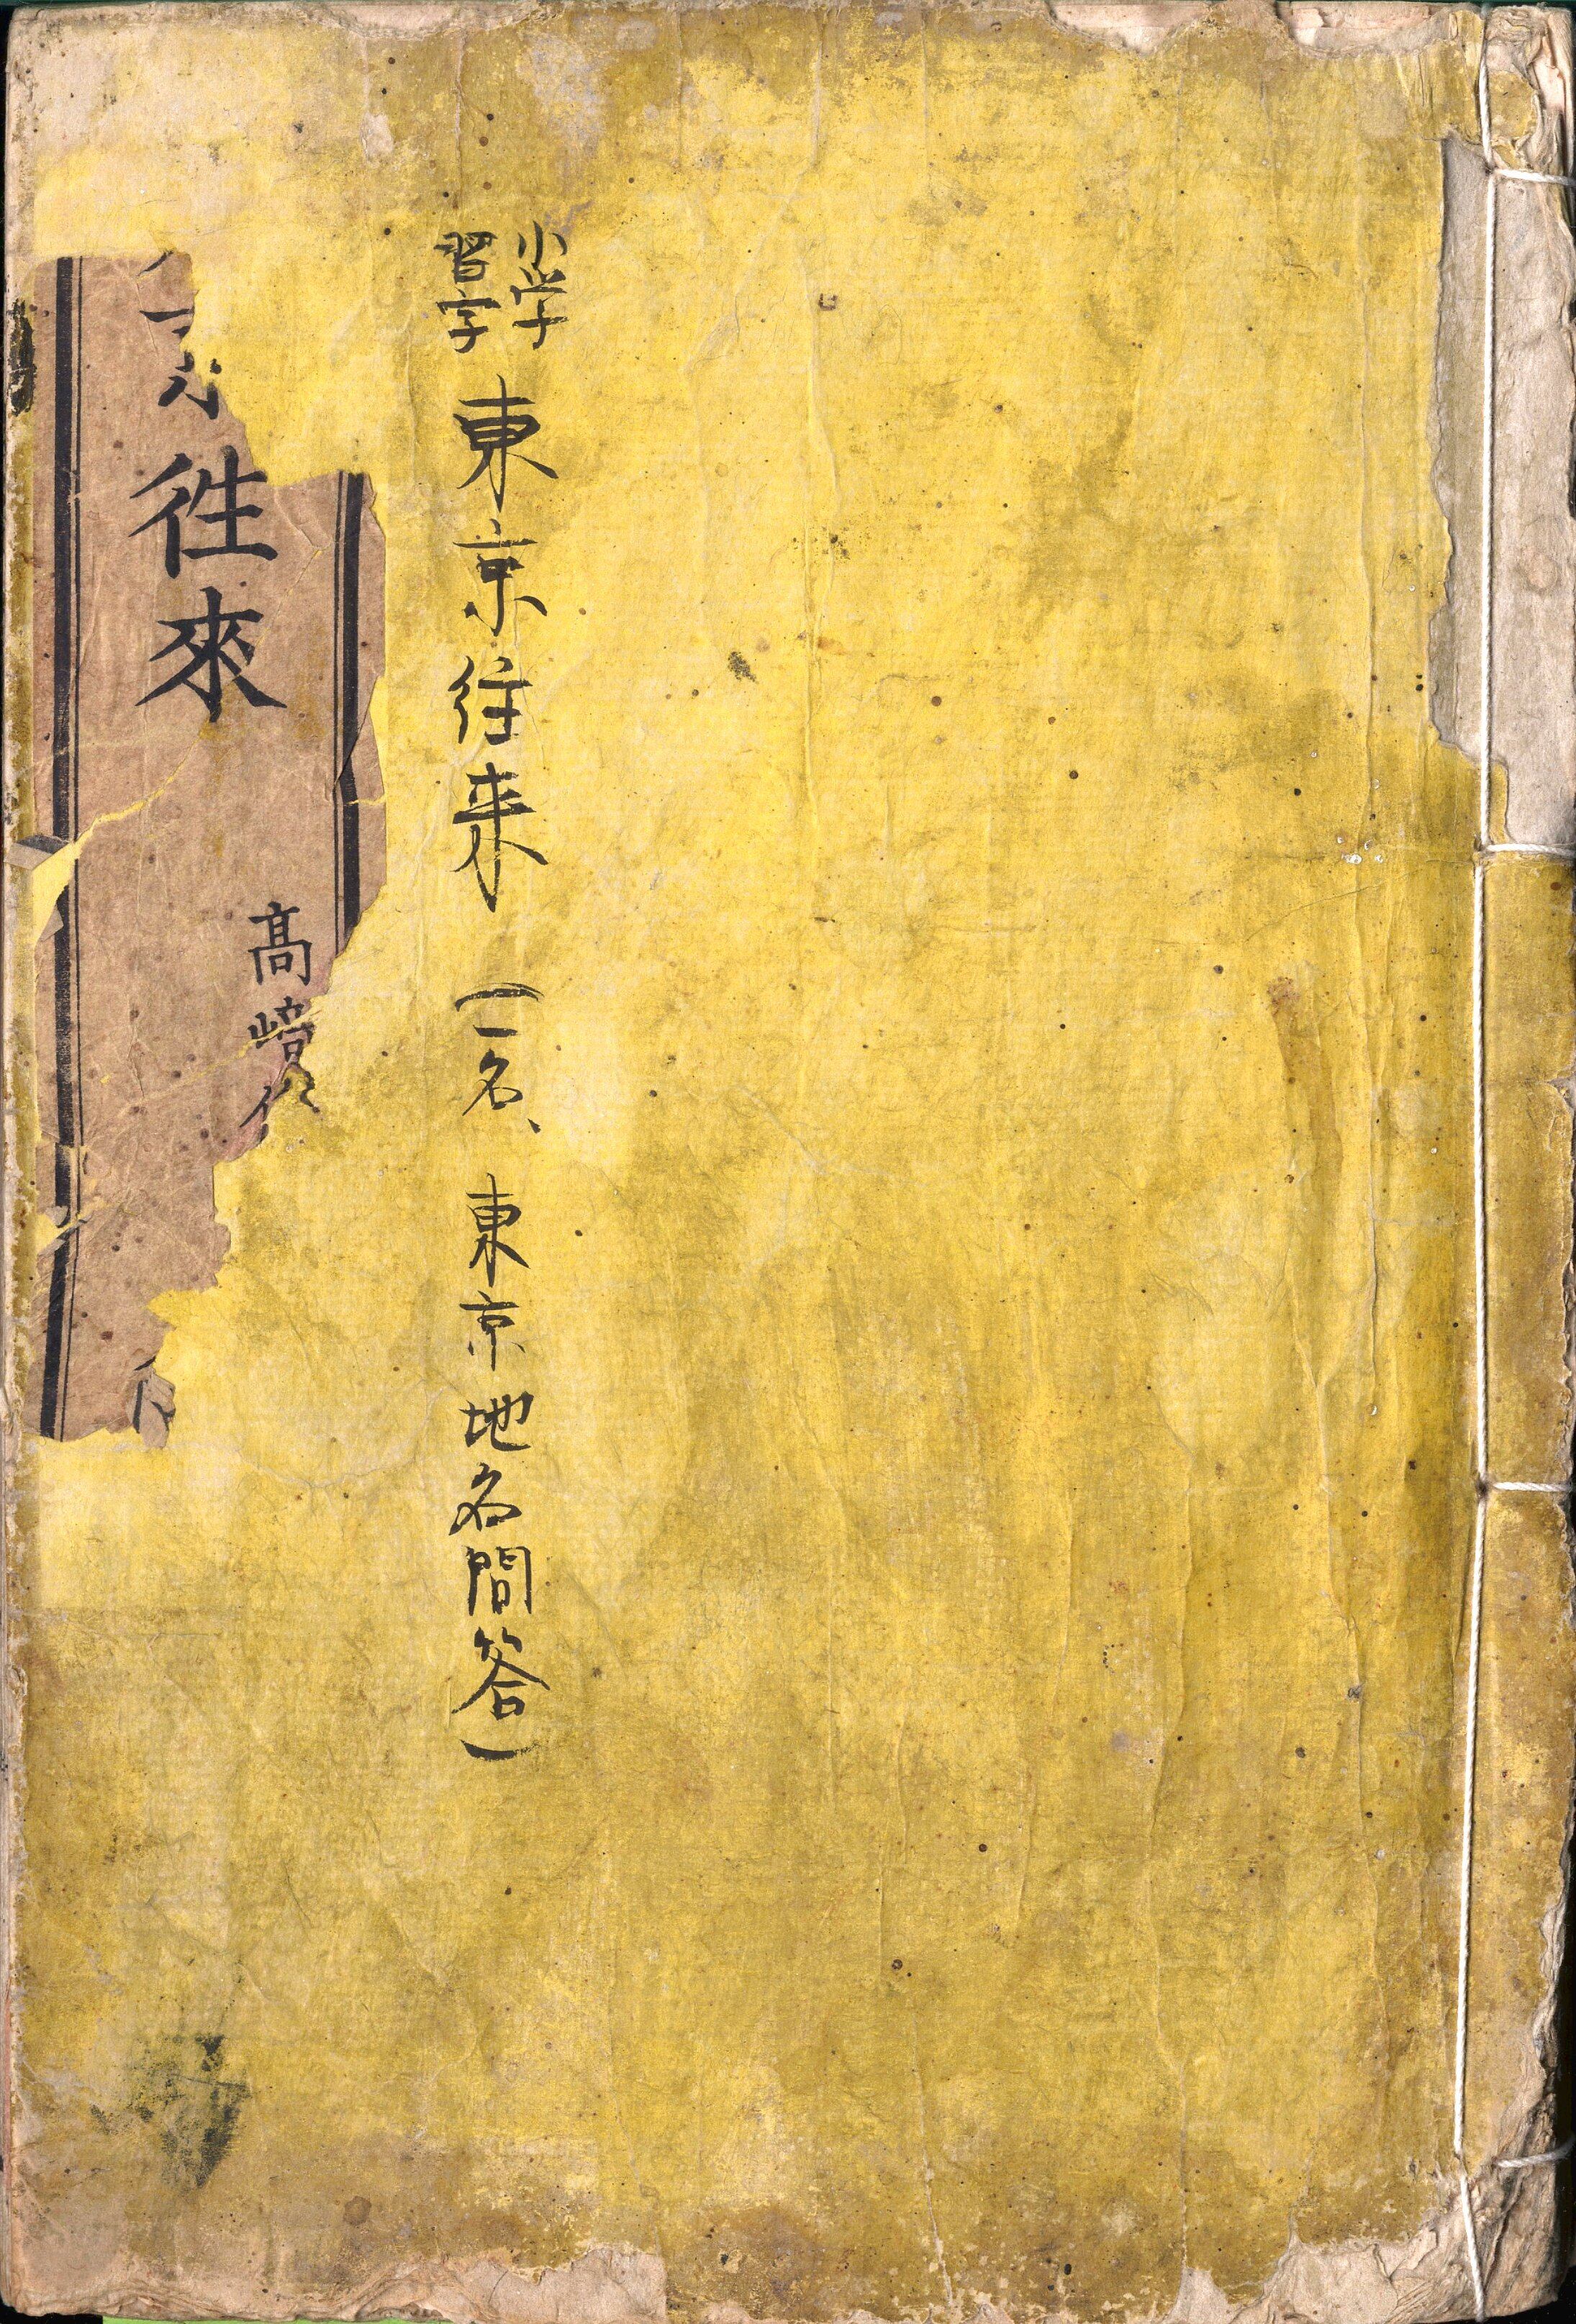 小学
習字
東京往来(一名、東京地名問答)
京往來
高﨑